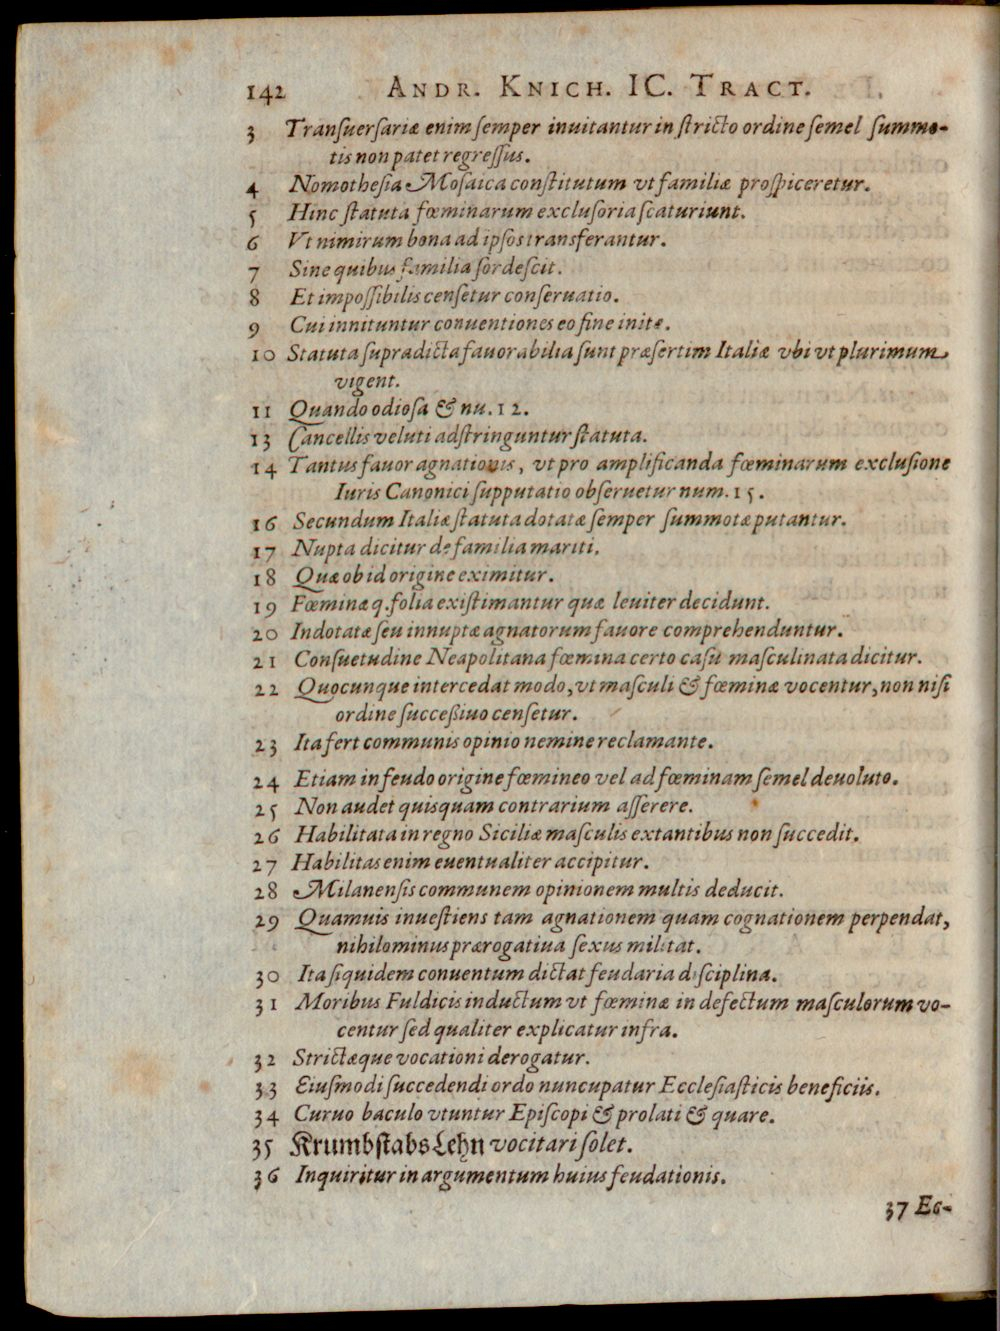 142 ANDR. KNICH. IC. TRACT.
3 Tranſuerſariæ enim ſemper inuitantur in ſtricto ordine ſemel ſummo-
tis non patet regreſſus.
4 Nomotheſia Moſaica conſtitutum vt familiæ proſpiceretur.
5 Hinc ſtatuta fœminarum excluſoria ſcaturiunt.
6 Vt nimirum bona ad ipſos transferantur.
7 Sine quibus familia ſordeſcit.
8 Et impoſſibilis cenſetur conſeruatio.
9 Cui innituntur conuentiones eo fine initæ.
10 Statuta ſupradicta fauorabilia ſunt præſertim Italiæ vbi vt plurimum
vigent.
11 Quando odioſa & nu. 12.
13 Cancellis veluti adſtringuntur ſtatuta.
14 Tantus fauor agnationis, vt pro amplificanda fœminarum excluſione
Iuris Canonici ſupputatio obſeruetur num. 15.
16 Secundum Italiæ ſtatuta dotatæ ſemper ſummotæ putantur.
17 Nupta dicitur de familia mariti.
18 Quæ ob id origine eximitur.
19 Fœminæ q. folia exiſtimantur quæ leuiter decidunt.
20 Indotatæ ſeu innuptæ agnatorum fauore comprehenduntur.
21 Conſuetudine Neapolitana fœmina certo caſu maſculinata dicitur.
22 Quocunque intercedat modo, vt maſculi & fœminæ vocentur, non niſi
ordine ſucceßiuo cenſetur.
23 Ita fert communis opinio nemine reclamante.
24 Etiam in feudo origine fœmineo vel ad fœminam ſemel deuoluto.
25 Non audet quisquam contrarium aſſerere.
26 Habilitata in regno Siciliæ maſculis extantibus non ſuccedit.
27 Habilitas enim euentualiter accipitur.
28 Milanenſis communem opinionem multis deducit.
29 Quamuis inueſtiens tam agnationem quam cognationem perpendat,
nihilominus prærogatiua ſexus militat.
30 Ita ſiquidem conuentum dictat feudaria diſciplina.
31 Moribus Fuldicis inductum vt fœminæ in defectum maſculorum vo-
centur ſed qualiter explicatur infra.
32 Strictæque vocationi derogatur.
33 Eiuſmodi ſuccedendi ordo nuncupatur Eccleſiaſticis beneficiis.
34 Curuo baculo vtuntur Epiſcopi & prolati & quare.
35 Krumbſtabs Lehn vocitari ſolet.
36 Inquiritur in argumentum huius feudationis.
37 Ec-